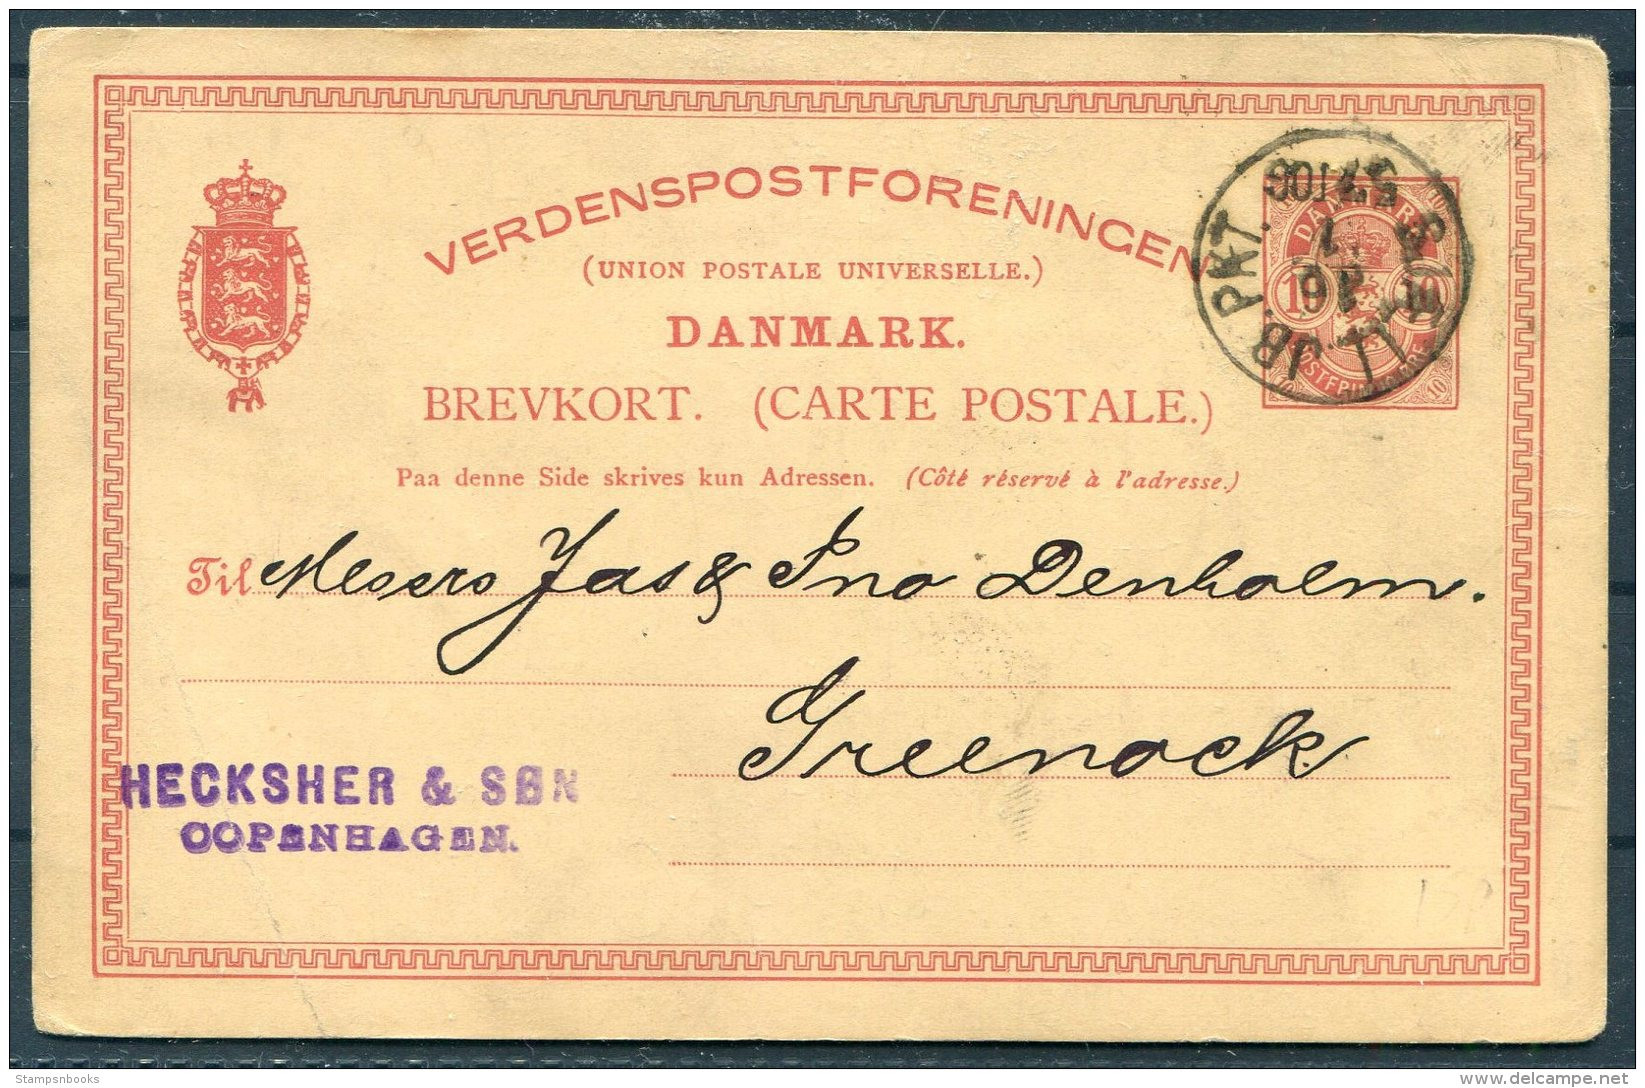 VERDENSPOSTFORENINGEN
(UNION POSTALE UNIVERSELLE.)
DANMARK.
BREVKORT. (CARTE POSTALE.)
Paa denne Side skrives kun Adressen. (Côté réservé à l'adresse.)
JB. PKT.
DANMARK
10 10
Til Messrs Jas & Jno Denholm.
Greenock
HECKSHER & SØN
COPENHAGEN.
Stampsnbooks
delcampe.net